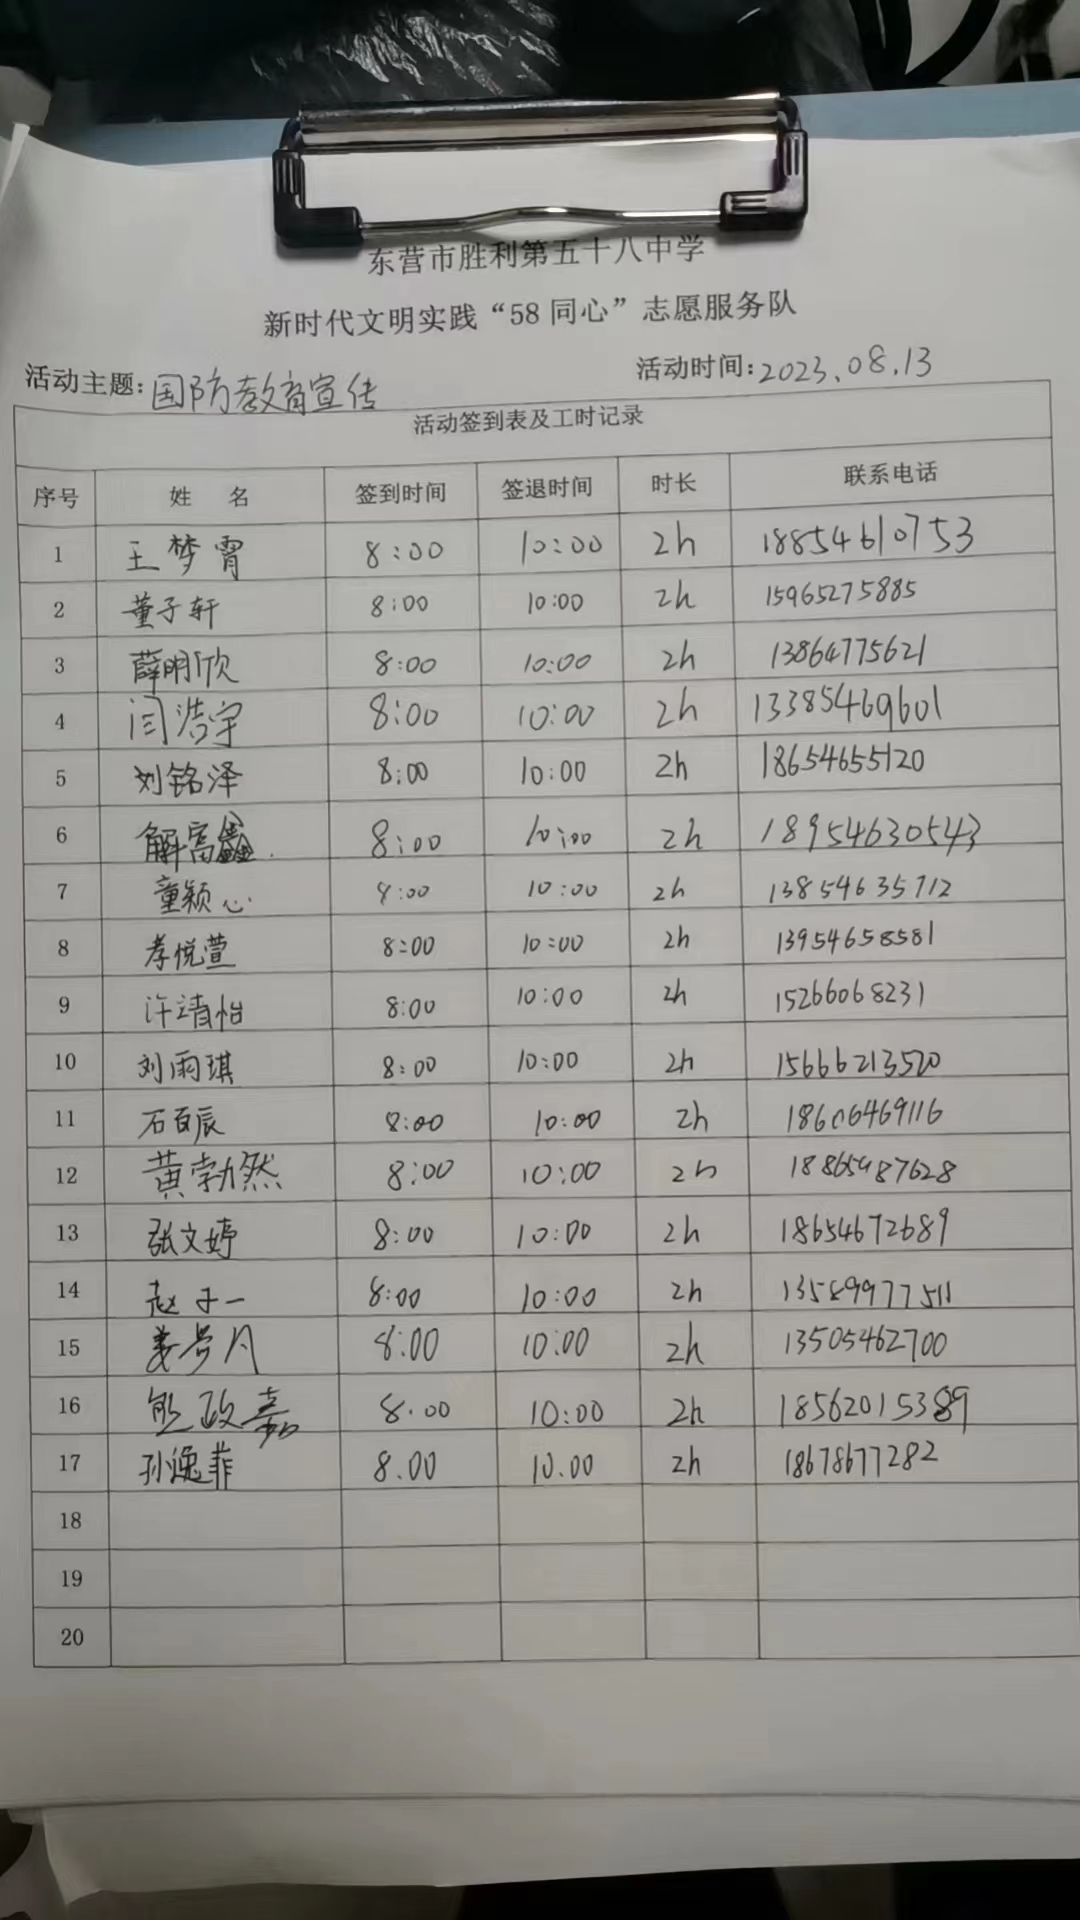 东营市胜利第五十八中学
新时代文明实践“58同心”志愿服务队
活动主题:国防教育宣传 活动时间:2023.08.13
活动签到表及工时记录
序号 姓 名 签到时间 签退时间 时长 联系电话
1 王梦霄 8:00 10:00 2h 18854610753
2 董子轩 8:00 10:00 2h 15965275885
3 薛明欣 8:00 10:00 2h 13864775621
4 闫浩宇 8:00 10:00 2h 13385469601
5 刘铭泽 8:00 10:00 2h 18654655120
6 解富鑫 8:00 10:00 2h 18954630543
7 童颖心 8:00 10:00 2h 13854635712
8 孝悦萱 8:00 10:00 2h 13954658581
9 许靖怡 8:00 10:00 2h 15266068231
10 刘雨琪 8:00 10:00 2h 15666213520
11 石百辰 8:00 10:00 2h 18606469116
12 黄勃然 8:00 10:00 2h 18865487628
13 张文婷 8:00 10:00 2h 18654672689
14 赵子一 8:00 10:00 2h 13589977511
15 姜梦月 8:00 10:00 2h 13505462700
16 政嘉 8.00 10:00 2h 18562015389
17 孙逸菲 8.00 10.00 2h 18678677282
18
19
20